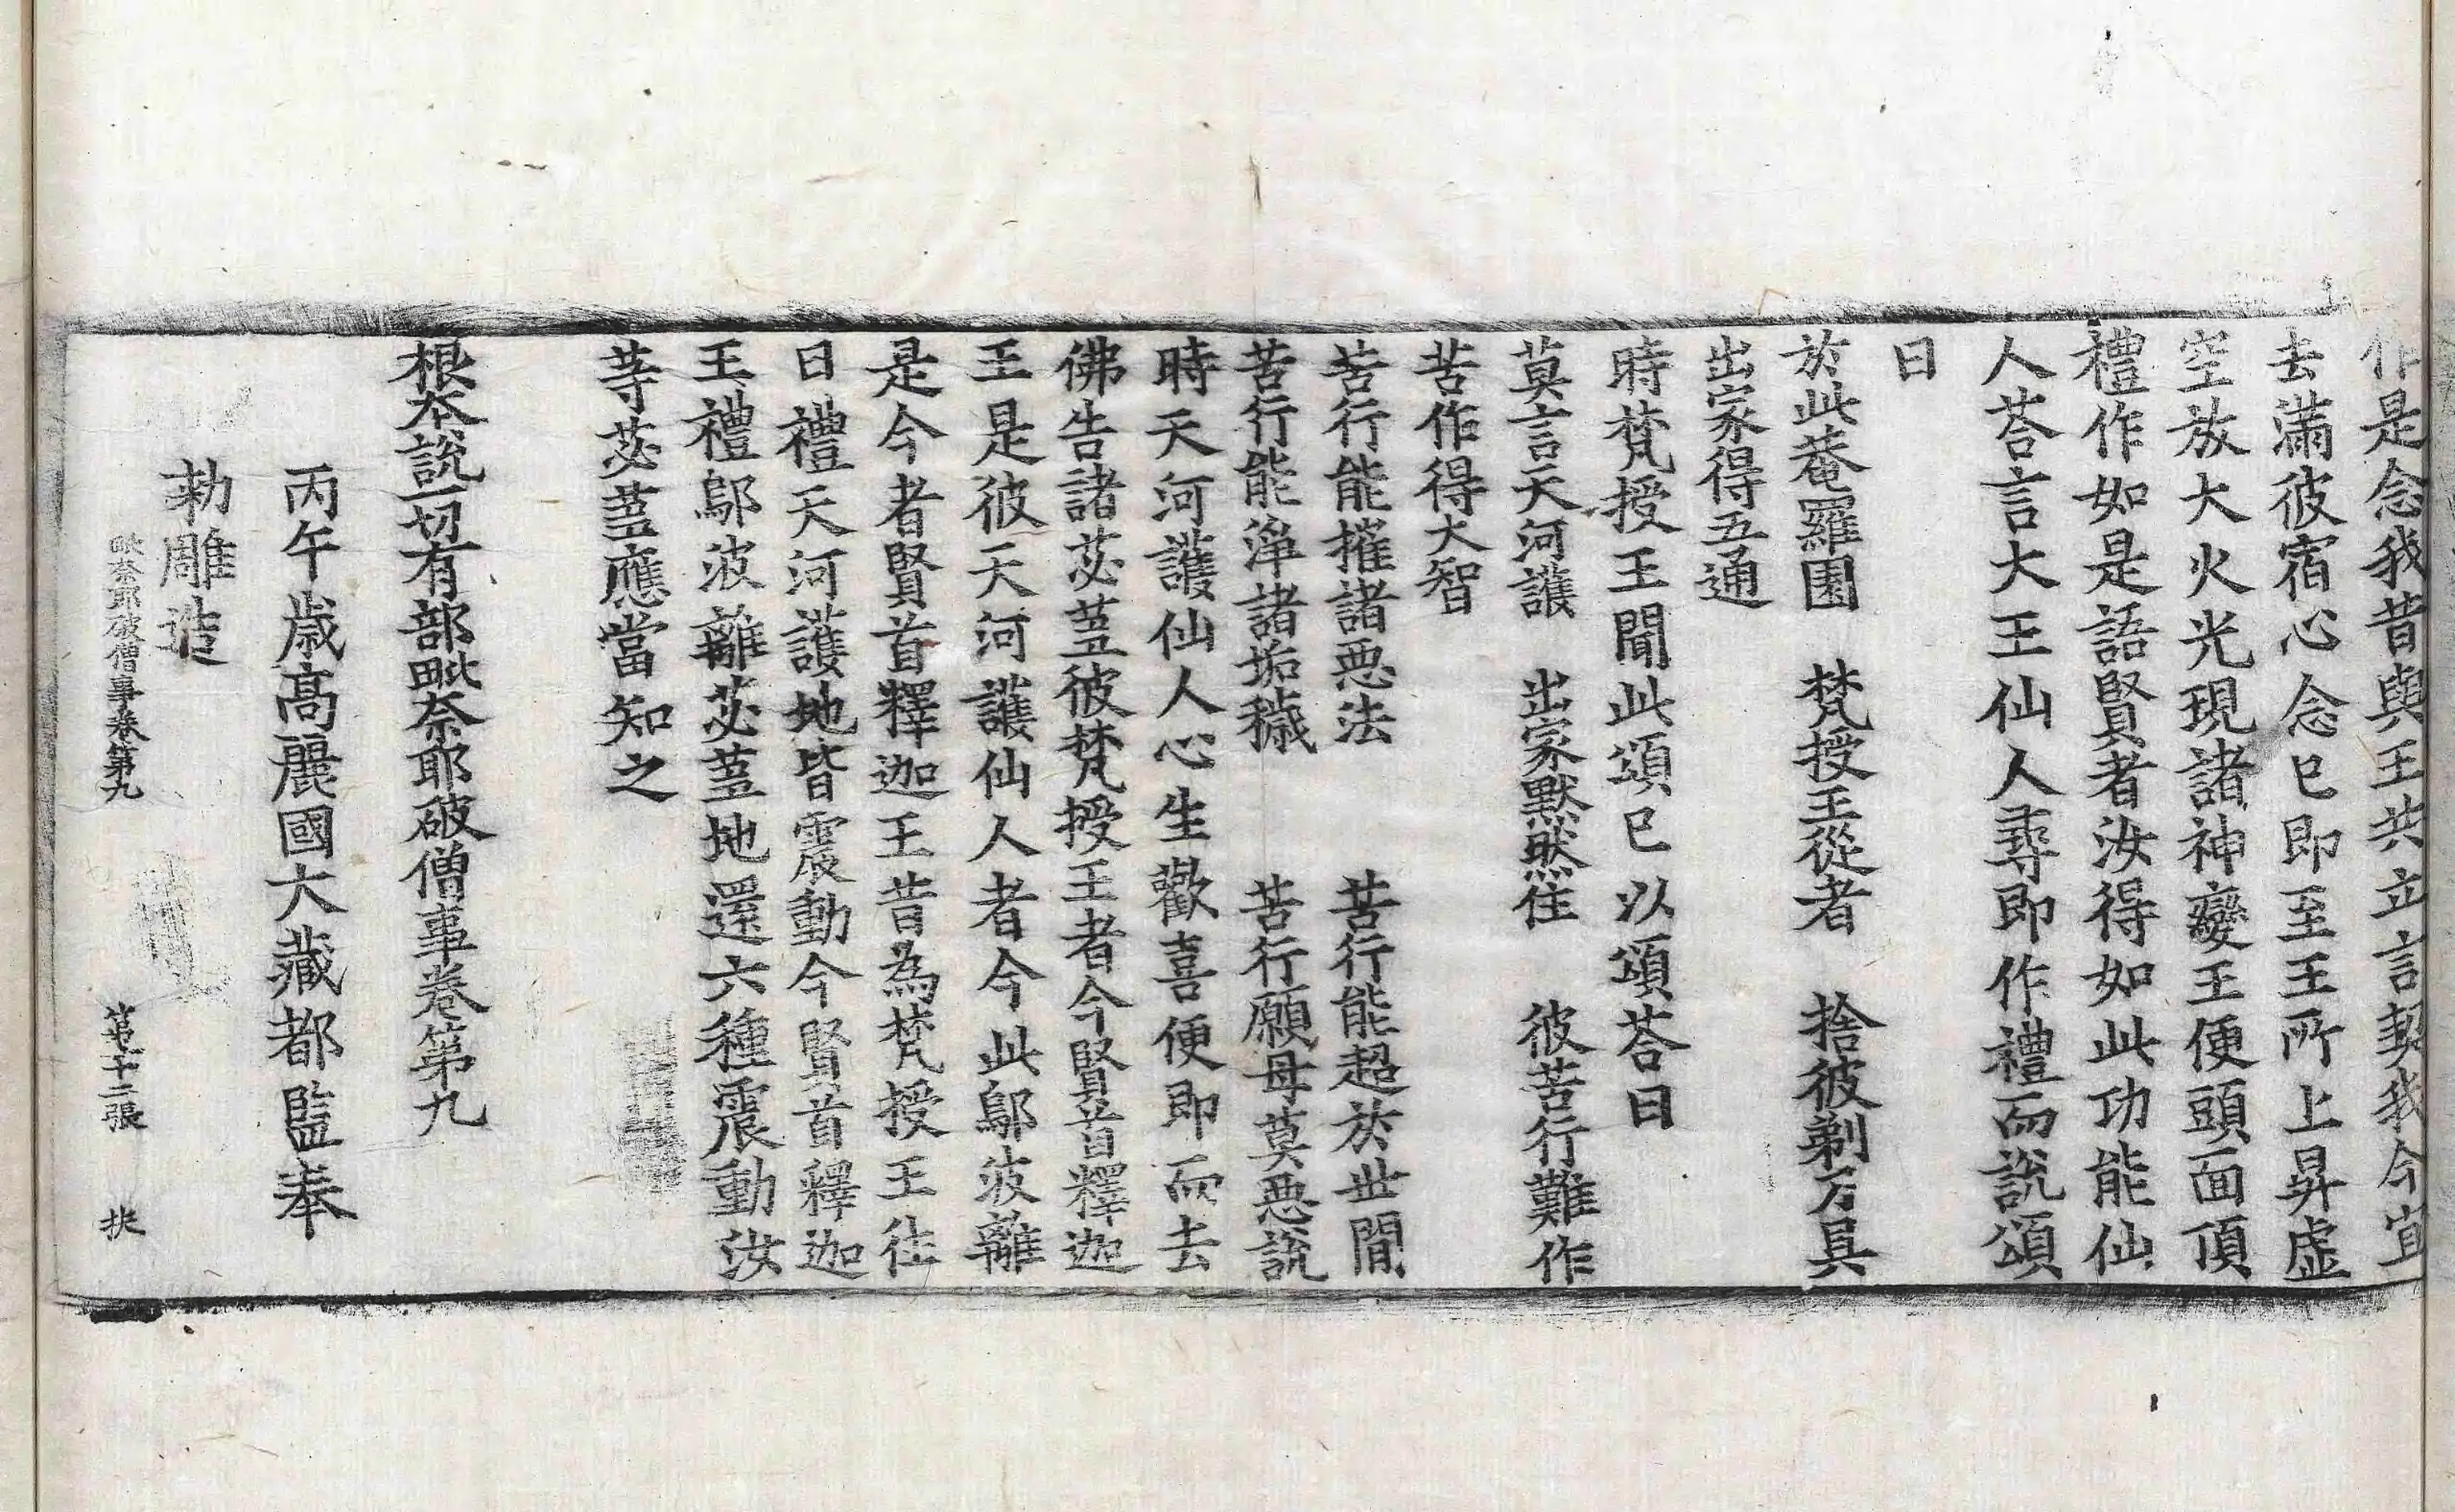 作是念我昔與王共立言契我今宜
去滿彼宿心念已即至王所上昇虛
空放大火光現諸神變王便頭面頂
禮作如是語賢者汝得如此功能仙
人荅言大王仙人尋即作禮而說頌
曰
於此菴羅園　梵授王從者　捨彼剃刀具
出家得五通
時梵授王聞此頌已以頌荅曰
莫言天河護　出家黙然住　彼苦行難作
苦作得大智
苦行能摧諸惡法　苦行能超於世間
苦行能淨諸垢穢　苦行願母莫惡說
時天河護仙人心生歡喜便即而去
佛告諸苾蒭彼梵授王者今賢首釋迦
王是彼天河護仙人者今此鄔波離
是今者賢首釋迦王昔為梵授王往
日禮天河護地皆震動今賢首釋迦
王禮鄔波離苾蒭地還六種震動汝
等苾蒭應當知之
根本說一切有部毗奈耶破僧事卷第九
丙午歲高麗國大藏都監奉
勑雕造
毗奈耶破僧事卷第九　第十二張　扶